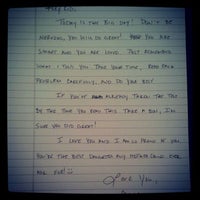 Hey Kid,
Today is the big day! Don't be
nervous, you will do great! You are
smart and you are loved. Just remember
what I told you. Take your time, read each
problem carefully, and do your best.
If you've already taken the test
by the time you read this, take a bow, I'm
sure you did great!
I love you and I am so proud of you.
You're the best daughter any mother could ever
ask for!
Love you,